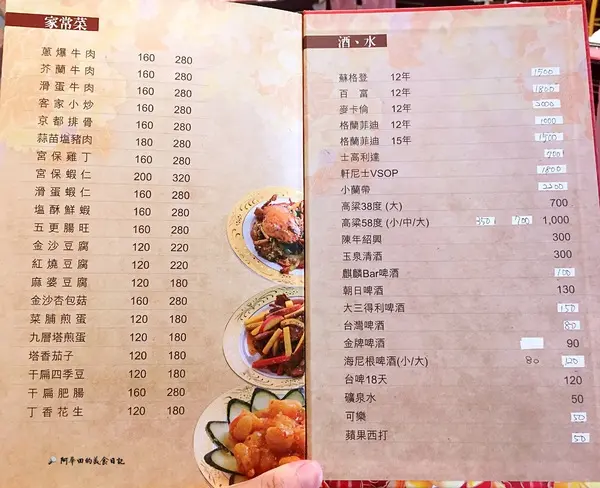 家常菜
蔥爆牛肉 160 280
芥蘭牛肉 160 280
滑蛋牛肉 160 280
客家小炒 160 280
京都排骨 160 280
蒜苗塩豬肉 180 280
宮保雞丁 160 280
宮保蝦仁 200 320
滑蛋蝦仁 160 280
塩酥鮮蝦 160 280
五更腸旺 160 280
金沙豆腐 120 220
紅燒豆腐 120 220
麻婆豆腐 120 180
金沙杏包菇 160 280
菜脯煎蛋 120 180
九層塔煎蛋 120 180
塔香茄子 120 180
干扁四季豆 120 180
干扁肥腸 160 280
丁香花生 120 180
阿華田的美食日記
酒、水
蘇格登 12年 1500
百富 12年 1800
麥卡倫 12年 2000
格蘭菲迪 12年 1000
格蘭菲迪 15年 1500
士高利達 700
軒尼士VSOP 1800
小蘭帶 2200
高梁38度(大) 700
高梁58度(小/中/大) 350 700 1,000
陳年紹興 300
玉泉清酒 300
麒麟Bar啤酒 100
朝日啤酒 130
大三得利啤酒 150
台灣啤酒 80
金牌啤酒 90
海尼根啤酒(小/大) 80 120
台啤18天 120
礦泉水 50
可樂 50
蘋果西打 50